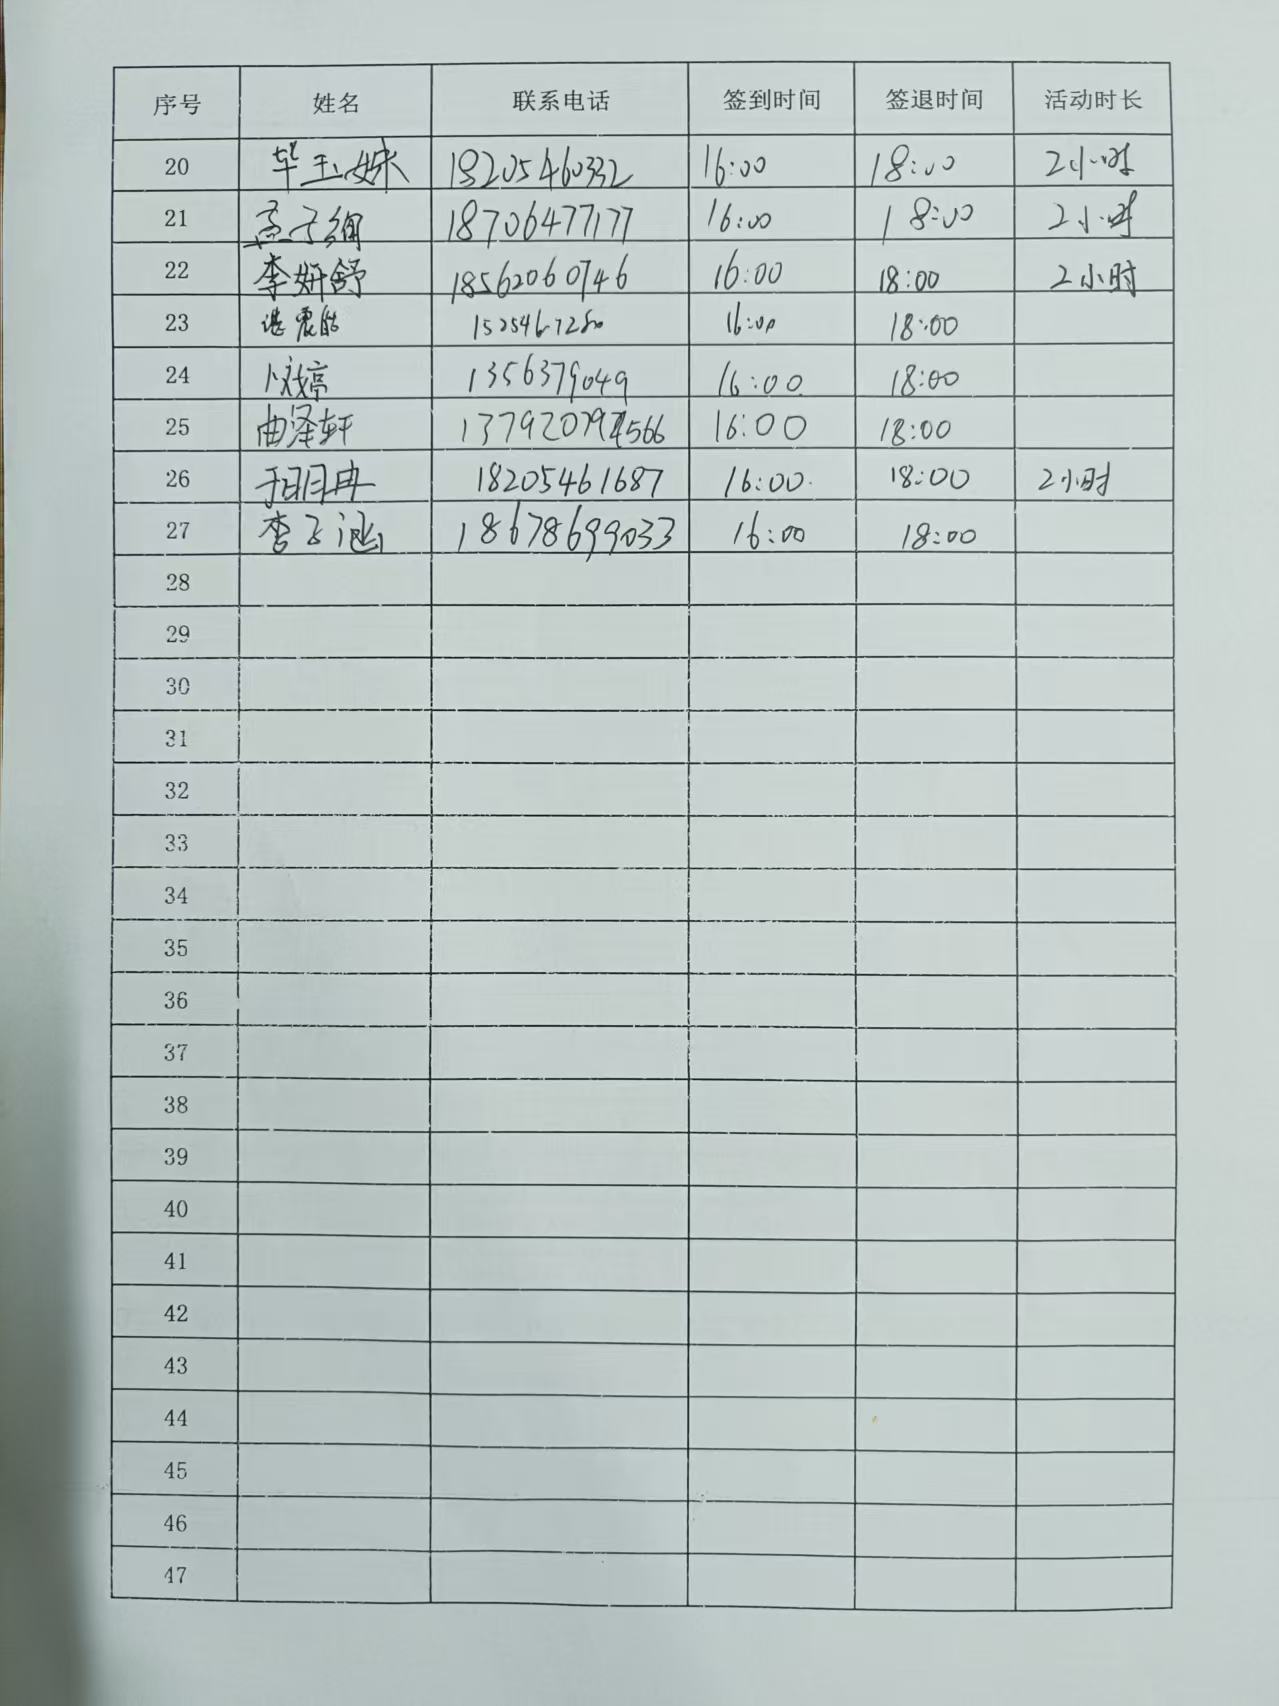 序号 姓名 联系电话 签到时间 签退时间 活动时长
20 毕玉姝 18205460332 16:00 18:00 2小时
21 孟子绚 18706477177 16:00 18:00 2小时
22 李妍舒 18562060746 16:00 18:00 2小时
23 16:00 18:00
24 1356379049 16:00 18:00
25 曲泽轩 16:00 18:00
26 于玥冉 18205461687 16:00 18:00 2小时
27 李子涵 18678699033 16:00 18:00
28
29
30
31
32
33
34
35
36
37
38
39
40
41
42
43
44
45
46
47